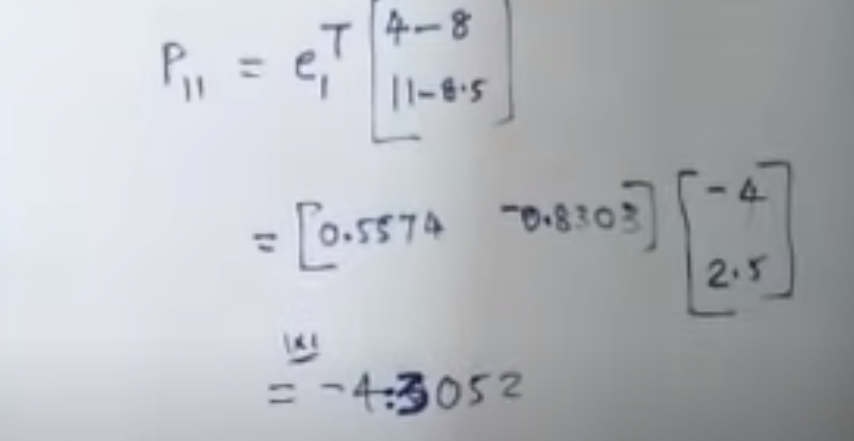 P₁₁ = e₁ᵀ [4-8
11-8.5]
= [0.5574 -0.8303] [-4
2.5]
1x1
= -4.3052